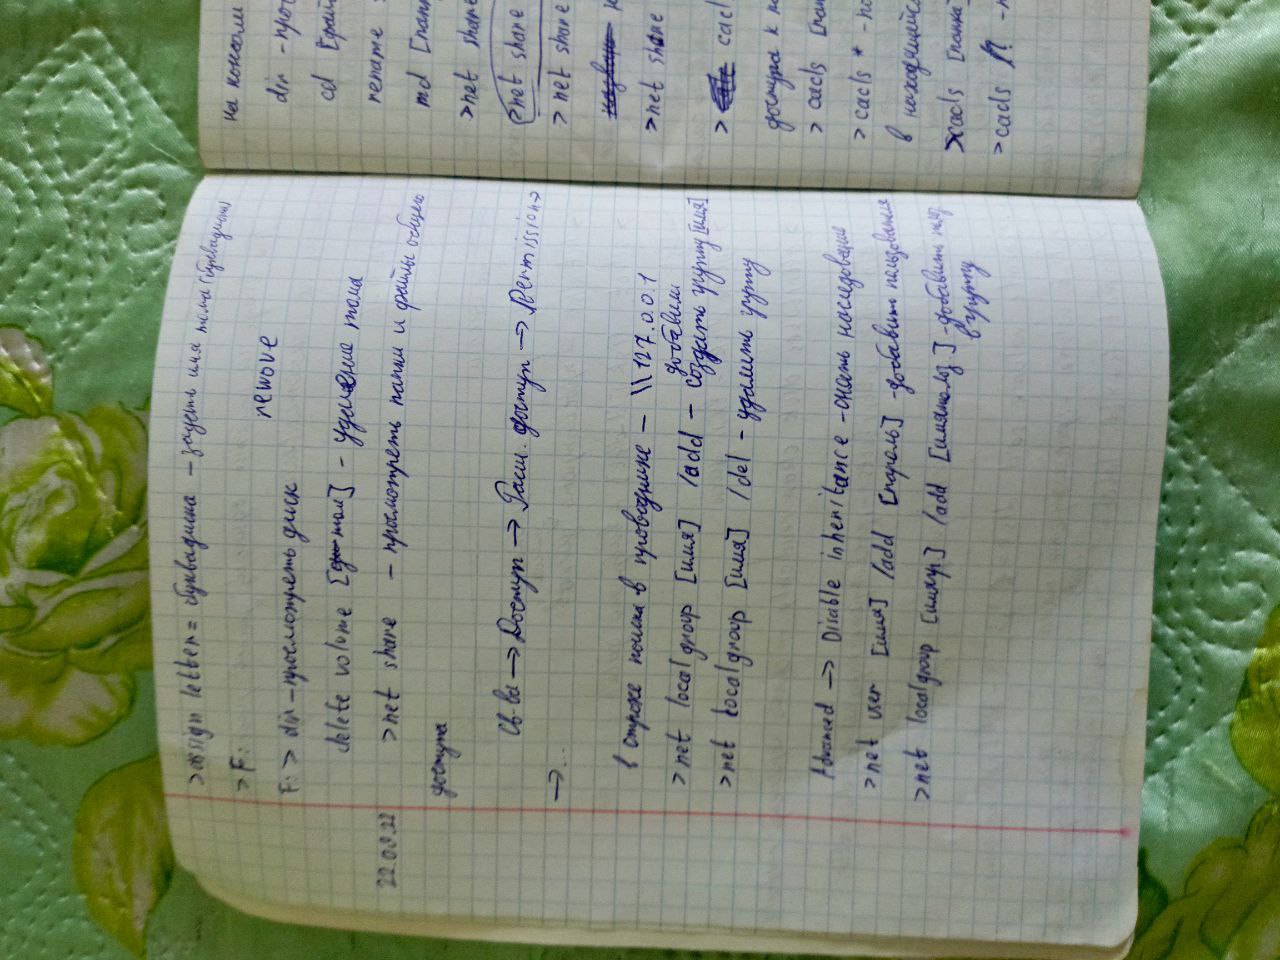 >assign letter = буквадиска – задать имя тома (буквадиска)
>F:
F:> dir – просмотреть диск
remove
delete volume [том] - удаление тома
22.09.22 >net share – просмотреть папки и файты общего
доступа
Св-ва → Доступ → Расш. доступ → Permission →
→...
в строке поиска в проводнике – \\127.0.0.1
добавили
>net localgroup [имя] /add – создать группу [имя]
>net localgroup [имя] /del - удалить группу
Advanced → Disable inheritance - снять наследование
>net user [имя] /add [пароль] - добавить пользователя
>net localgroup [имягр] /add [имяпольз] - добавить польз.
в группу
на консоли
dir - про
cd [
rename
md [
>net share
>net share
>net share
>net share
> cacl
доступа к
> cacls [
> cacls * - по
в находящейся
>cacls [папка]
> cacls /?